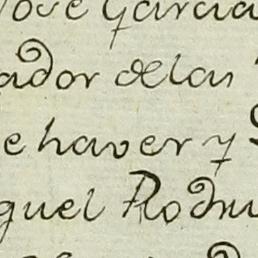 Jose Garcia
ador de las
e haver y
guel Rodri